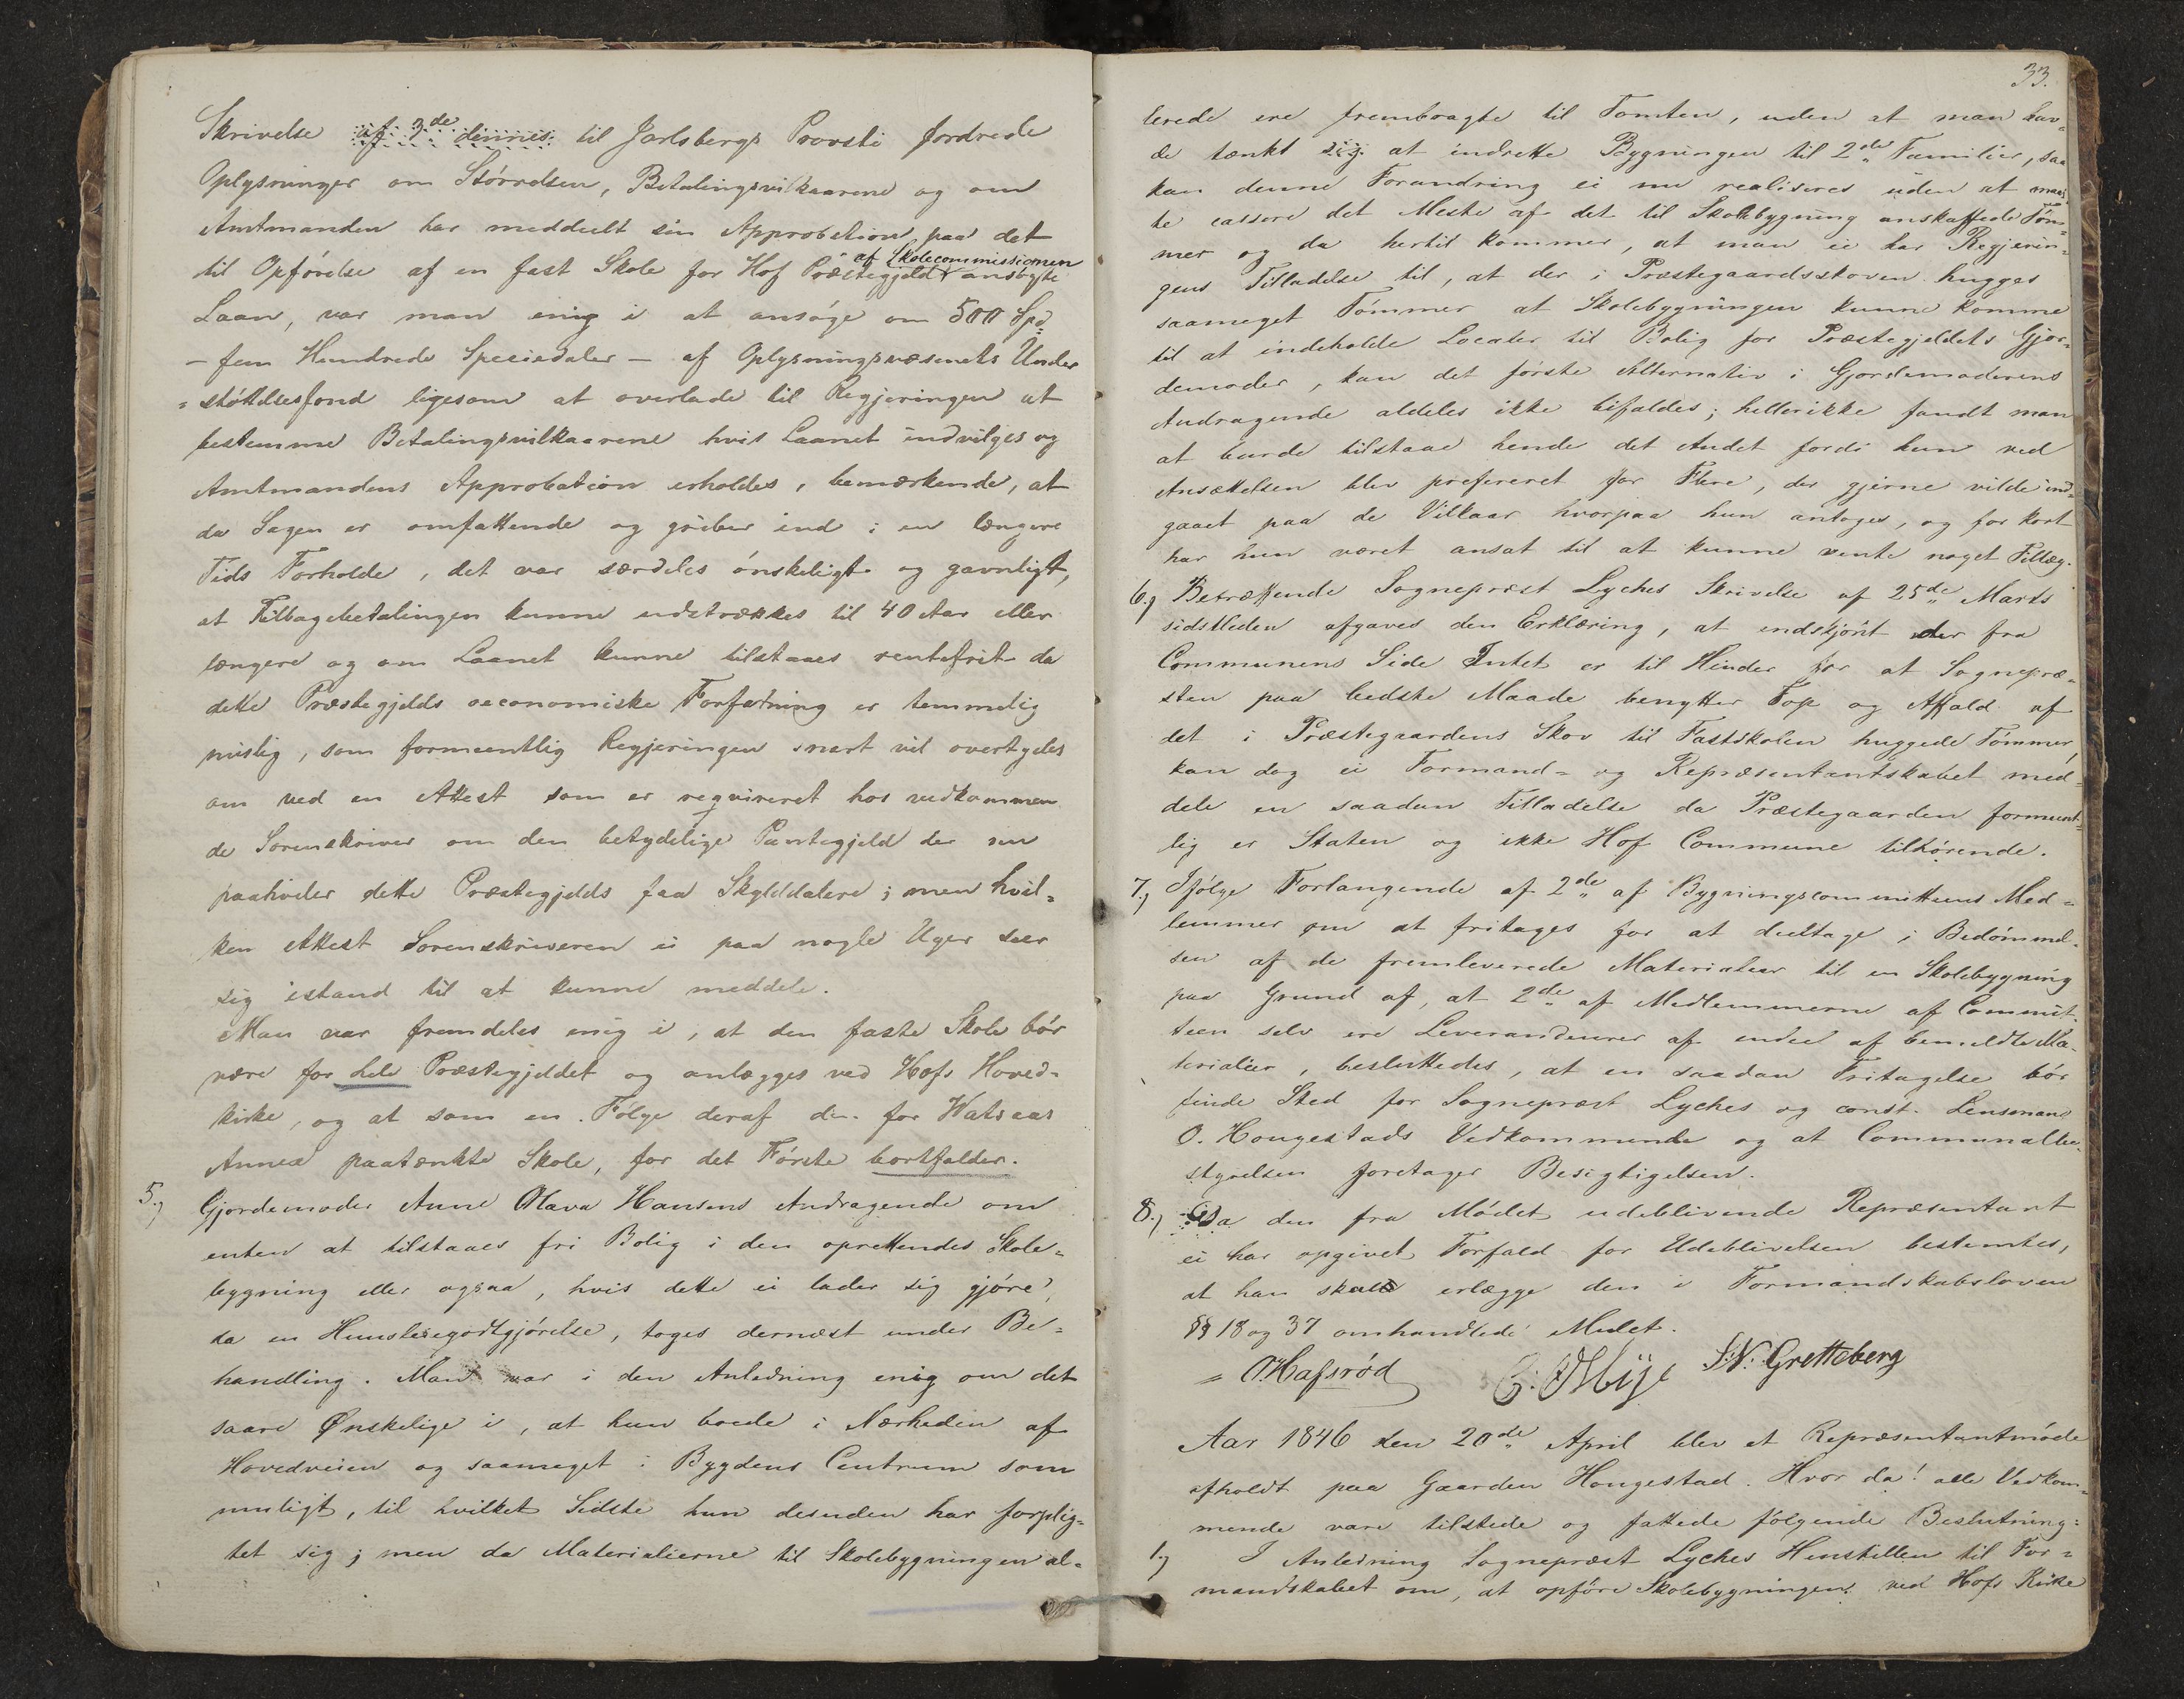 Skrivelse af 3de dennes til Jarlsbergs Provsti fordrede
Oplysninger om Størrelsen, Betalingsvilkaarene og om
Amtmanden har meddeelt sin Approbation paa det
af Skolecommissionen
til Opførelse af en fast Skole for Hof Præstegjeld ansøgte
Laan, var man enig i at ansøge om 500 Spd
- fem Hundrede Speciedaler - af Oplysningsvæsenets Under
= støttelsesfond ligesom at overlade til Regjeringen at
bestemme Betalingsvilkaarene hvis Laanet indvilges og
Amtmandens Approbation erholdes, bemærkende, at
da Sagen er omfattende og griber ind i en længere
Tids Forholde, det var særdeles ønskeligt og gavnligt,
at Tilbagebetalingen kunne udstrækkes til 40 Aar eller
længere og om Laanet kunne tilstaaes rentefrit da
dette Præstegjelds oeconomiske Forfatning er temmelig
mislig, som formeentlig Regjeringen snart vil overtydes
om ved en Attest som er reqvireret hos vedkommen
de Sorenskriver om den betydelige Pantegjeld der nu
paahviler dette Præstegjelds faa Skylddalere; men hvil=
ken Attest Sorenskriveren ei paa nogle Uger seer
sig istand til at kunne meddele.
Man var fremdeles enig i, at den faste Skole bør
være for hele Præstegjeldet og anlægges ved Hofs Hoved=
kirke, og at som en Følge deraf den for Watsaas
Annex paatænkte Skole, for det Første bortfalder.
5.) Gjordemoder Anne Olava Hansens Andragende om
enten at tilstaaes fri Bolig i den oprettendes Skole=
bygning eller ogsaa, hvis dette ei lader sig gjøre,
da en Huusleiegodtgjørelse, toges dernæst under Be=
handling. Man var i den Anledning enig om det
saare Ønskelige i, at hun boede i Nærheden af
Hovedveien og saameget i Bygdens Centrum som
muligt, til hvilket Sidste hun desuden har forplig=
tet sig; men da Materialierne til Skolebygningen al=
33.
lerede ere frembragte til Tomten, uden at man hav=
de tænkt sig at indrette Bygningen til 2de Familier, saa
kan denne Forandring ei nu realiseres uden at maa
te cassere det Meste af det til Skolebygning anskaffede Tøm=
mer og da hertil kommer, at man ei har Regjerin=
gens Tilladelse til, at der i Præstegaardsskoven hugges
saameget Tømmer at Skolebygningen kunne komme
til at indeholde Locale til Bolig for Præstegjeldets Gjor=
demoder, kan det første Alternativ i Gjordemoderens
Andragende aldeles ikke bifaldes; hellerikke fandt man
at burde tilstaae hende det Andet fordi hun ved
Ansættelsen blev prefereret for Flere, der gjerne vilde ind=
gaaet paa de Vilkaar hvorpaa hun antoges, og for kort
har hun været ansat til at kunne vente noget Tillæg.
6.) Betræffende Sognepræst Lyches Skrivelse af 25de Marts
sidstleden afgaves den Erklæring, at endskjønt der fra
Communens Side Intet er til Hinder for at Sognepræ=
sten paa bedste Maade benytter Top og Affald af
det i Præstegaardens Skov til Fastskolen huggede Tømmer,
kan dog ei Formand= og Repræsentantskabet med=
dele en saadan Tilladelse da Præstegaarden formeent=
lig er Staten og ikke Hof Commune tilhørende.
7.) Ifølge Forlangende af 2de af Bygningscommitteens Med=
lemmer om at fritages for at deeltage i Bedømmel=
sen af de fremleverede Materialier til en Skolebygning
paa Grund af, at 2de af Medlemmerne af Commit=
teen selv ere Leverandeurer af endeel af bemeldte Ma=
terialier, besluttedes, at en saadan Fritagelse bør
finde Sted for Sognepræst Lyches og const. Lensmand
O. Hougestads Vedkommende og at Communalbe=
styrelsen foretager Besigtigelsen.
8.) Da den fra Mødet udeblivende Repræsentant
ei har opgivet Forfald for Udeblivelsen bestemtes,
at han skal erlægge den i Formandskabsloven
§§ 18 og 37 omhandlede Mulct.
O. Hafsrød S.N. Gretteberg
Aar 1846 den 20de April blev et Repræsentantmøde
afholdt paa Gaarden Hougestad. Hvor da alle Vedkom=
mende vare tilstede og fattede følgende Beslutning:
1.) I Anledning Sognepræst Lyches Henstillen til For=
mandskabet om, at opføre Skolebygningen ved Hofs Kirke